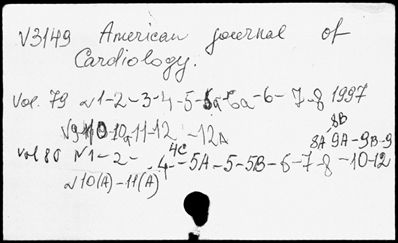 V3149 American journal of
Cardiology.
Vol. 79 N1-2-3-4-5-5a-6a-6-7-8 1997
8B
N9 10-10a-11-12 -12A 8A 9A-9B-9
4C
Vol 80 N1-2- -4-5A-5-5B-6-7-8-10-12
N10(A)-11(A)